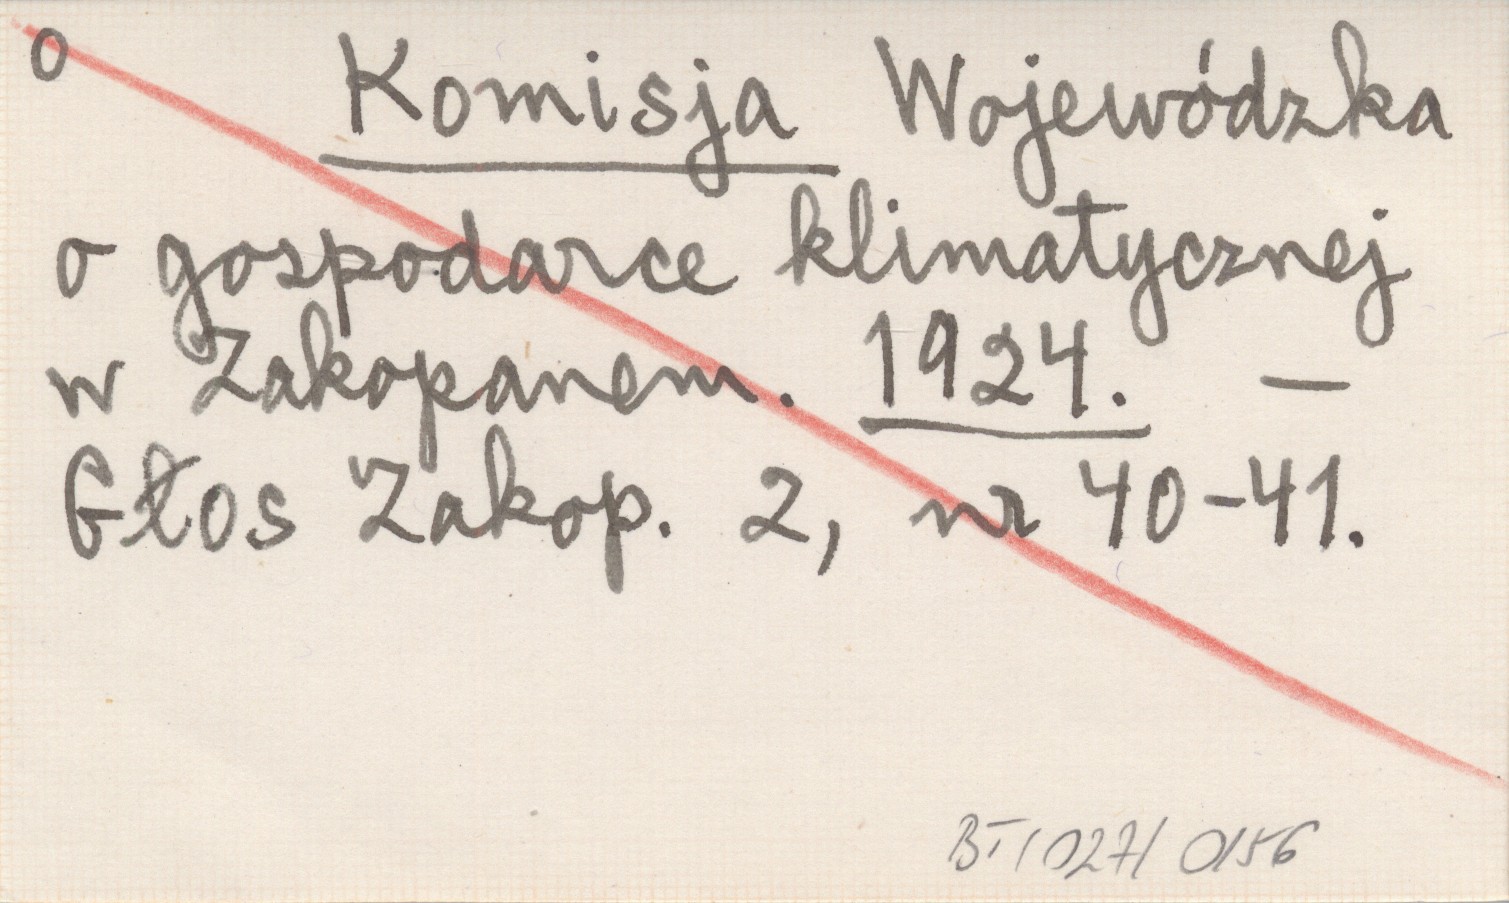 o Komisja Wojewódzka
o gospodarce klimatycznej
w Zakopanem. 1924. —
Głos Zakop. 2, nr 40-41.
BT/027/0156